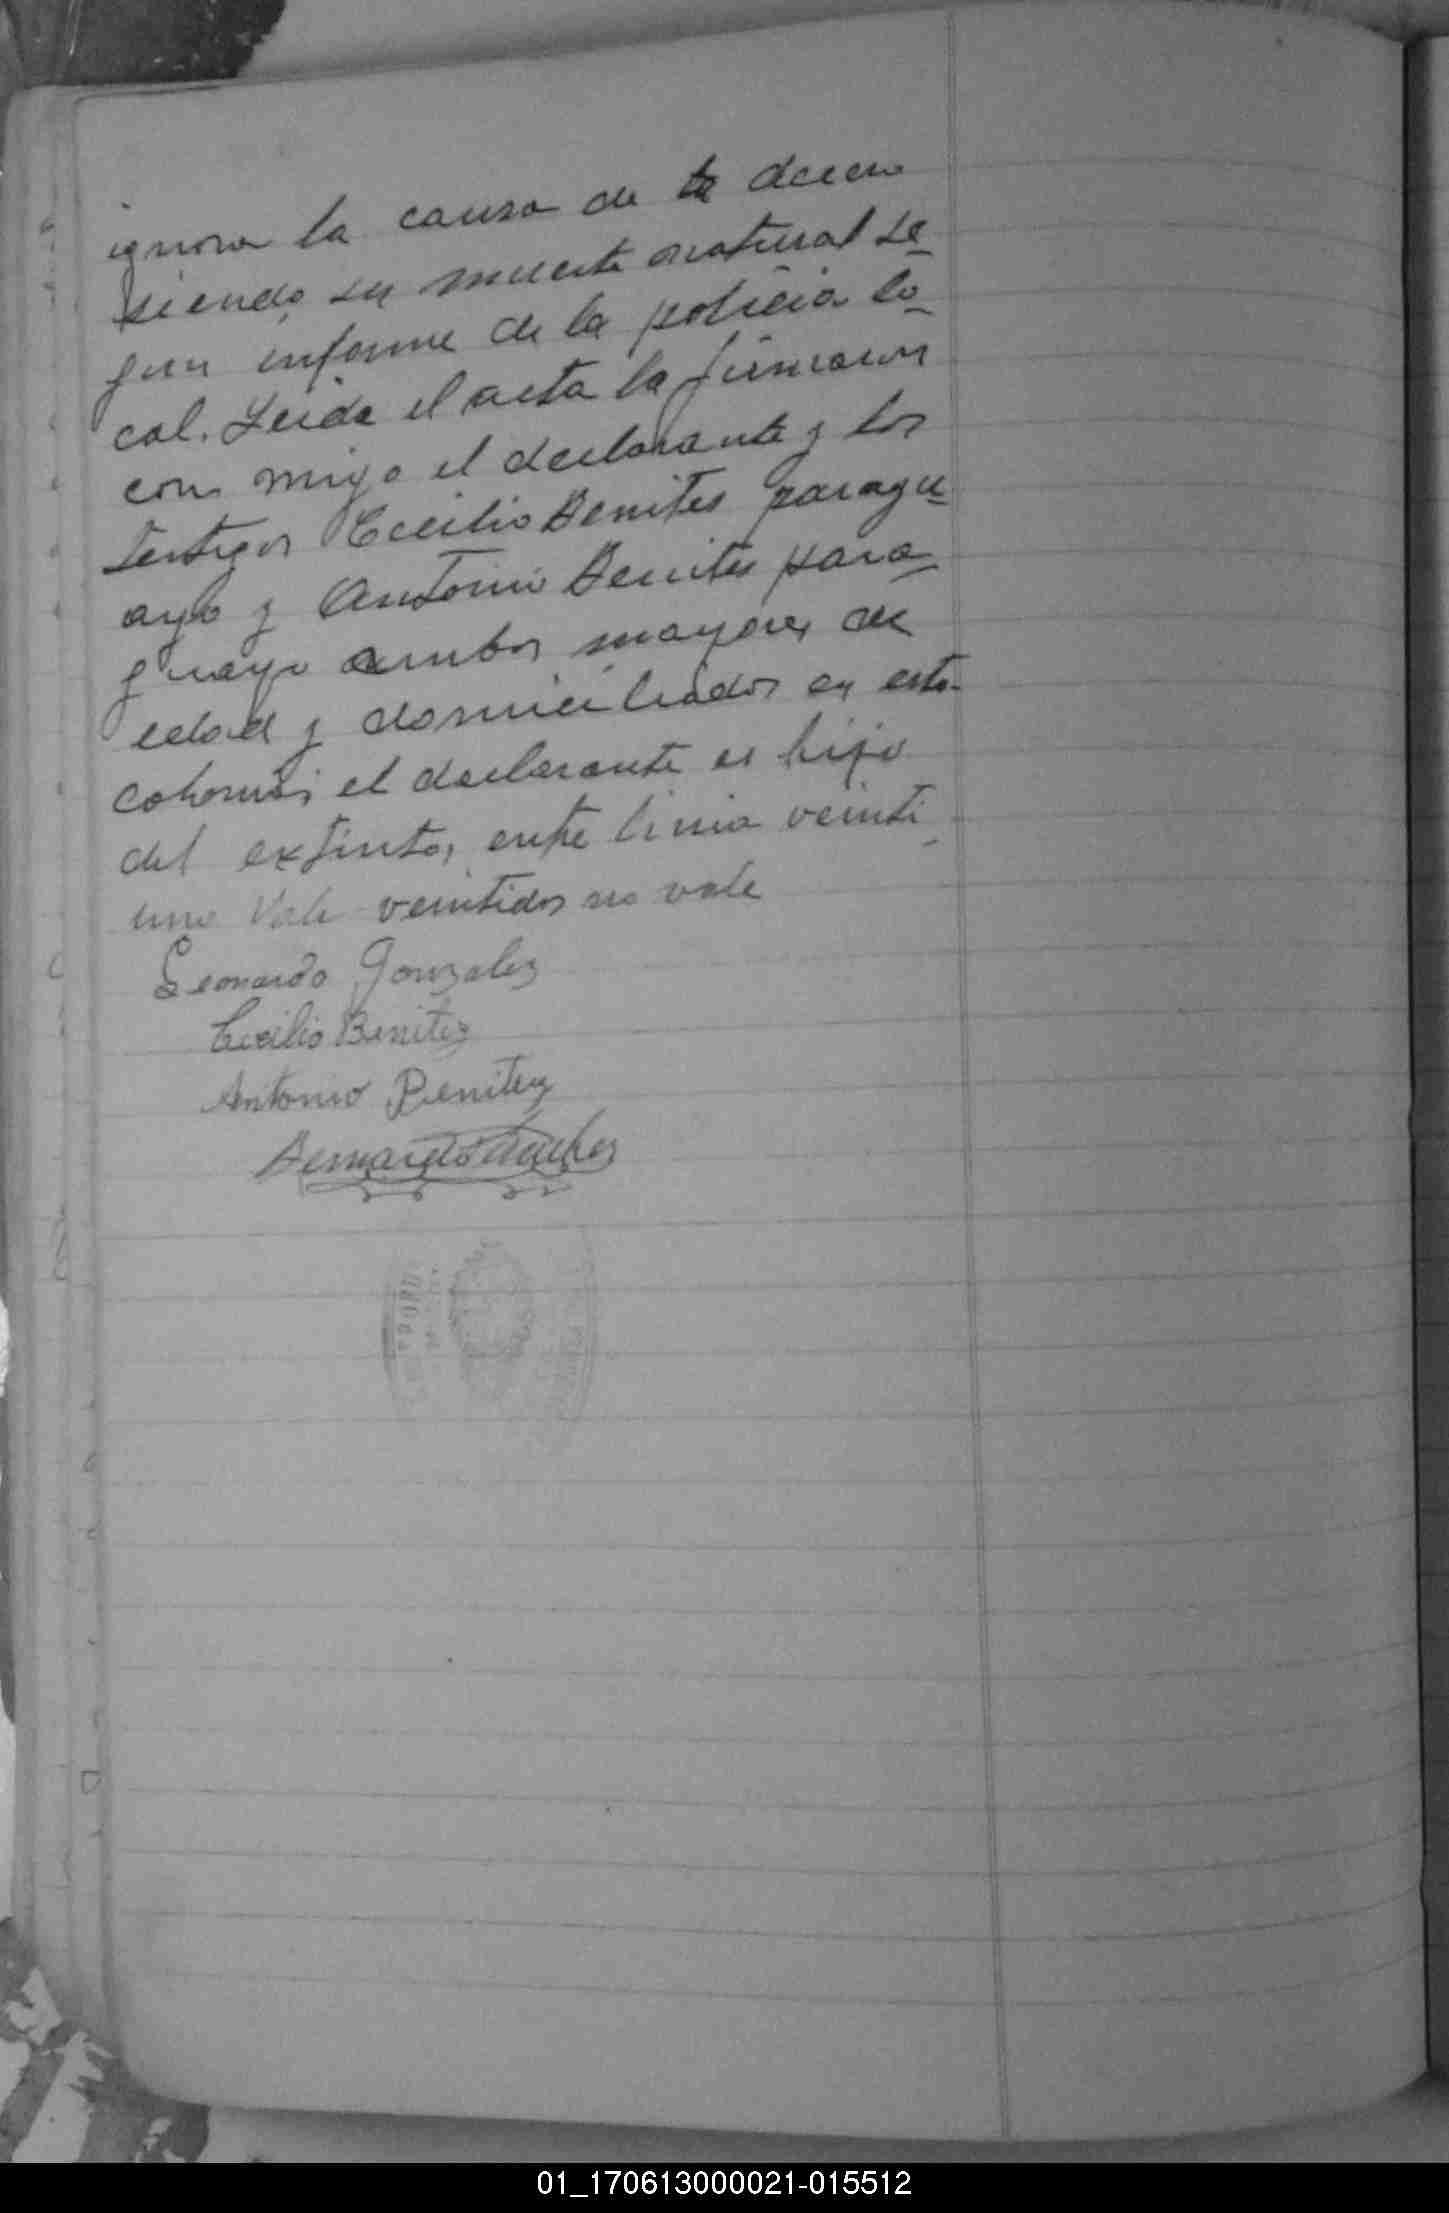 ignora la causa de la deceso
siendo su muerte natural se
gun informe de la policia lo
cal. Leida el acta la firmaron
con migo el declarante y los
testigos Cecilio Benites paragu
ayo y Antonio Benites para
guayo ambos mayores de
edad y domiciliados en esta
colonia; el declarante es hijo
del extinto, entre linia veinti
uno Vale veintidos no vale
Leonardo Gonzalez
Cecilio Benitez
Antonio Benitez
Bernardo
01_170613000021-015512